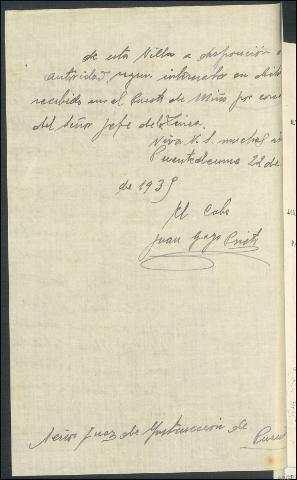 de esta Villa a disposición
autoridad, segun interesaba en
recibida en el Puesto de Miño por
del Señor Jefe de la Linea.
Viva V. S. muchos
Puentedeume 22 de
de 1939
El Cabo
Juan Gayo Prieto
Señor Juez de Instrucción de